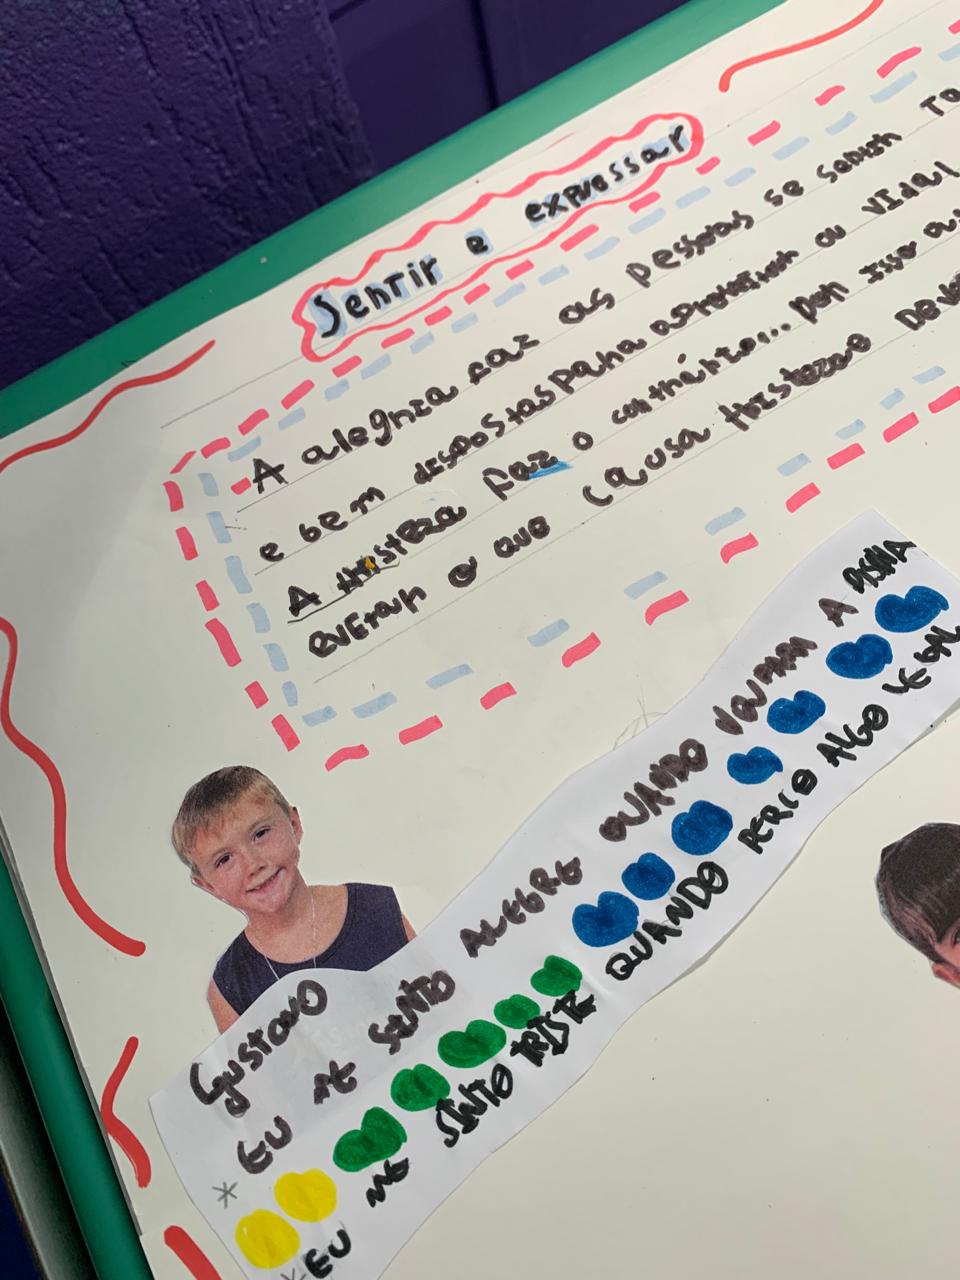 Sentir e expressar
A alegria faz as pessoas se sentem
e bem dispostas para aproveitar ou vida!
A tristeza faz o contrário... por isso
evitar o que causa tristeza
GUSTAVO
* EU ME SENTO ALEGRE QUANDO VOU PARA A
* EU ME SINTO TRISTE QUANDO PERCO ALGO LEGAL